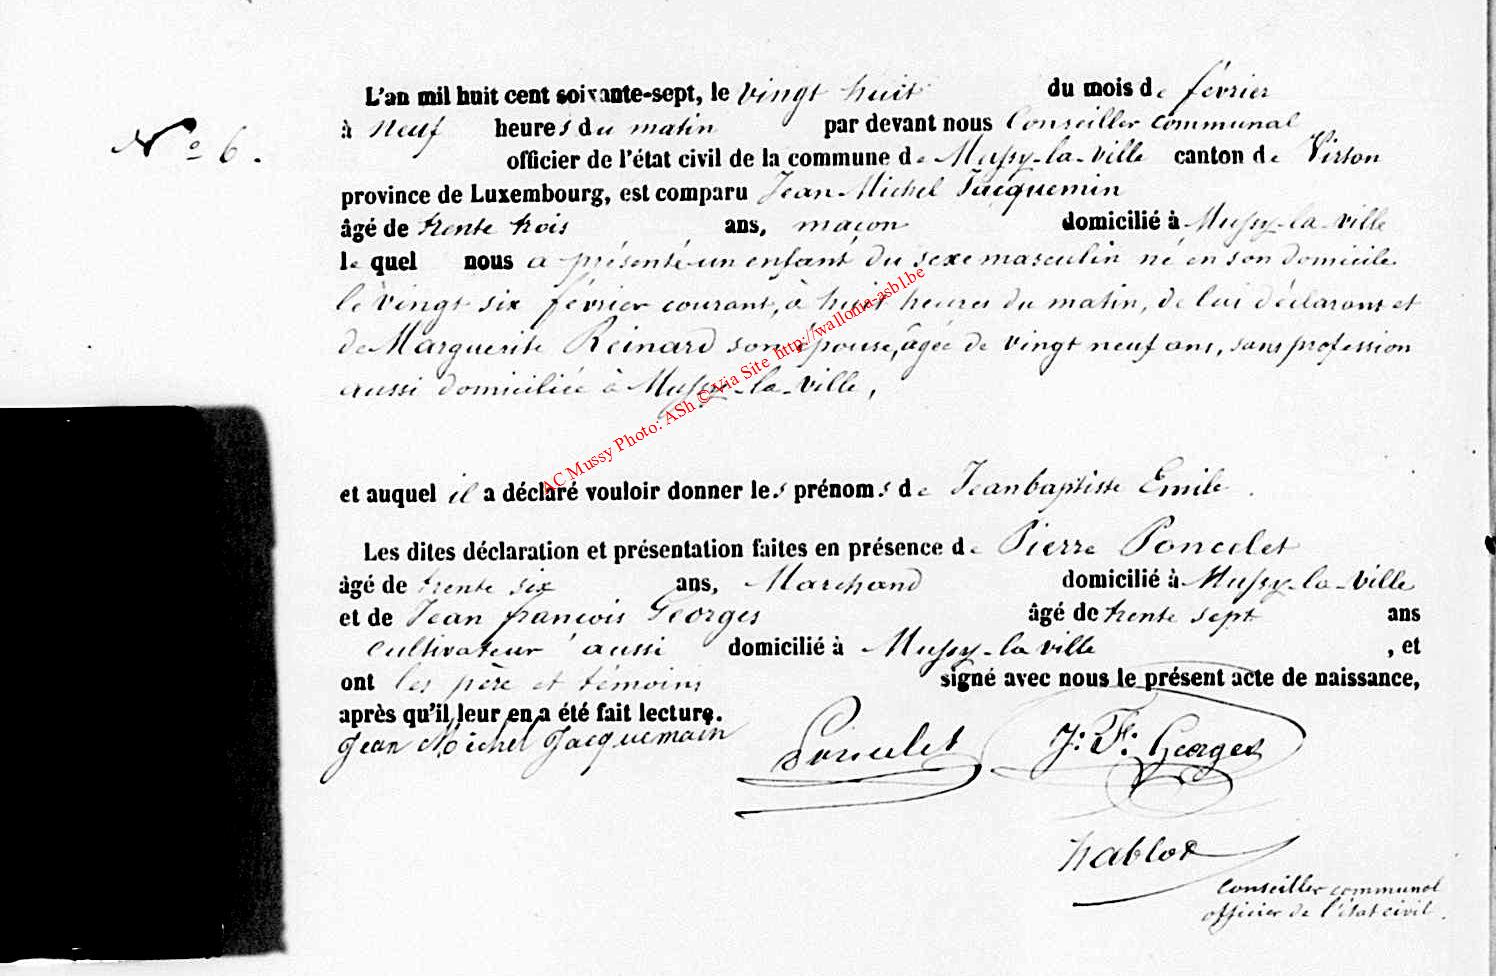 L'an mil huit cent soixante-sept, le vingt huit du mois de février
N° 6.
à neuf heures du matin par devant nous Conseiller communal
officier de l'état civil de la commune de Mussy-la-ville canton de Virton
province de Luxembourg, est comparu Jean Michel Jacquemin
âgé de trente trois ans, maçon domicilié à Mussy-la-ville
le quel nous a présenté un enfant du sexe masculin né en son domicile
le vingt six février courant, à huit heures du matin, de lui déclarant et
de Marguerite Reinard son épouse, âgée de vingt neuf ans, sans profession
aussi domiciliée à Mussy-la-ville,
AC Mussy Photo: ASh © Via Site http://wallonia-asbl.be
et auquel il a déclaré vouloir donner les prénoms de Jean baptiste Emile.
Les dites déclaration et présentation faites en présence de Pierre Poncelet
âgé de trente six ans, Marchand domicilié à Mussy-la-ville
et de Jean françois Georges âgé de trente sept ans
cultivateur aussi domicilié à Mussy-la ville , et
ont les père et témoins signé avec nous le présent acte de naissance,
après qu'il leur en a été fait lecture.
Jean Michel Jacquemain Poncelet J: F: Georges
hablot
Conseiller communal
officier de l'état civil.